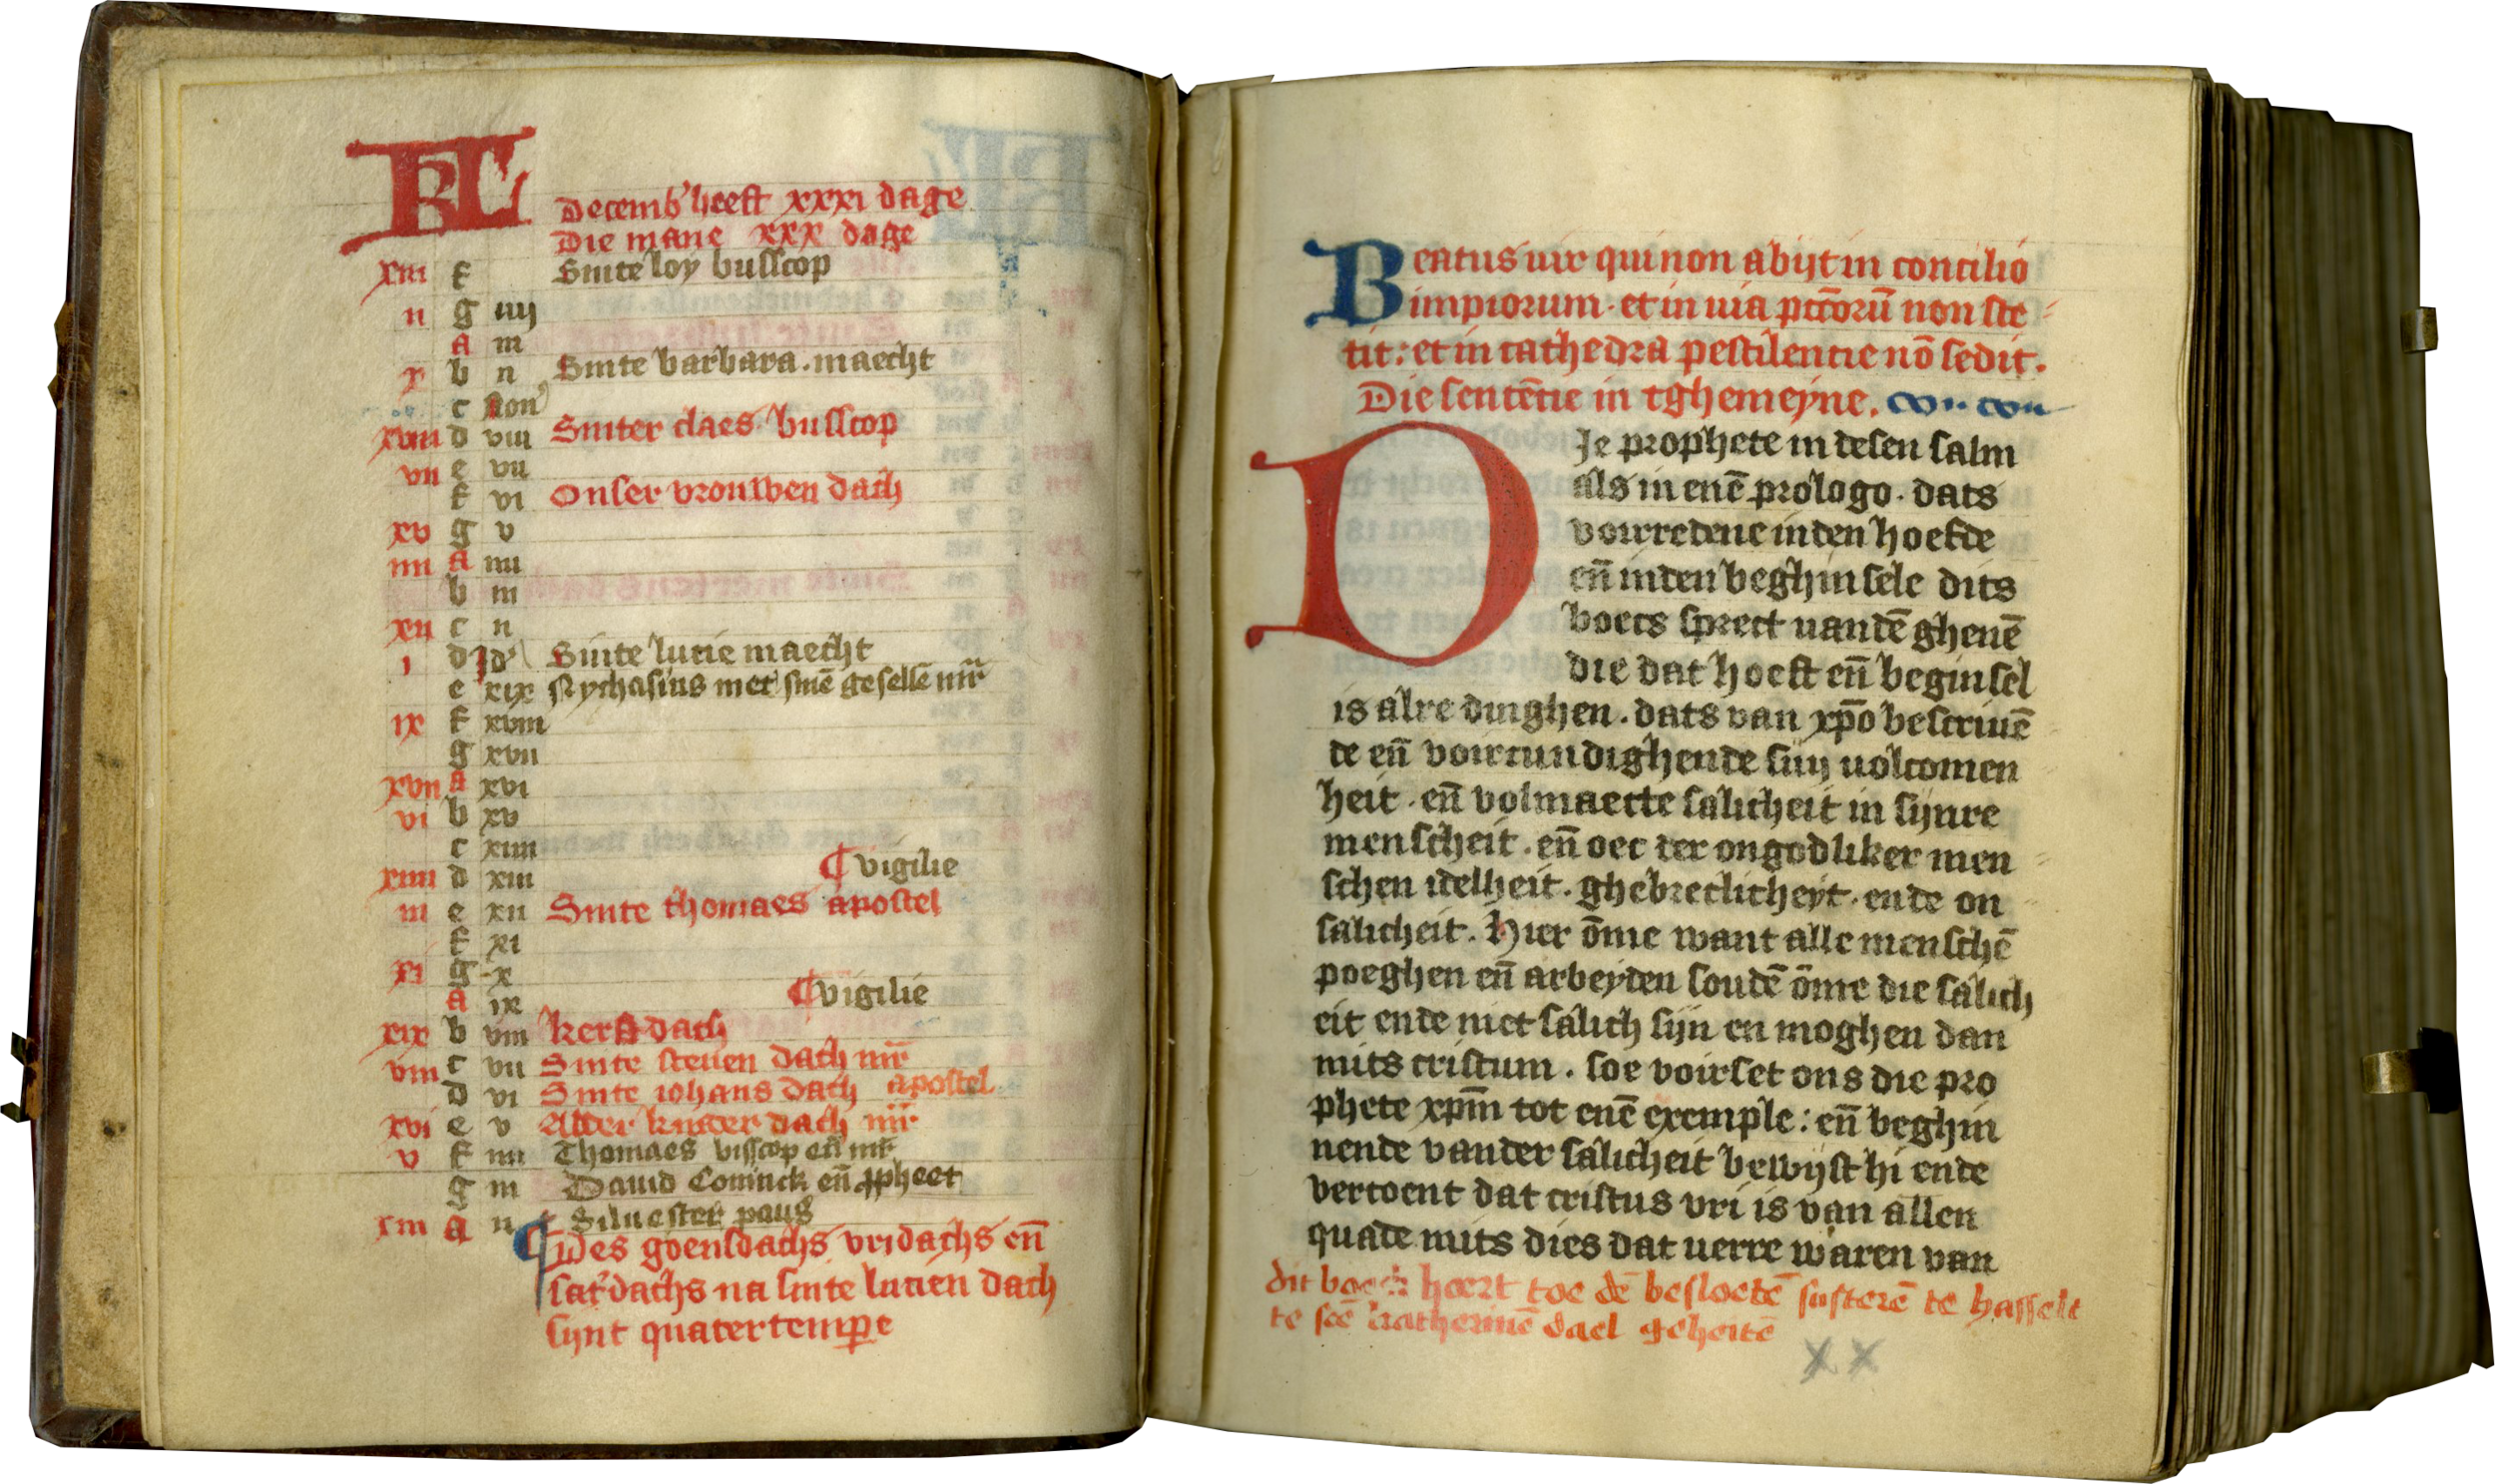 KL
Decemb' heeft xxxi dage
Die mane xxx dage
xiii f Sinte loy busscop
ii g iiij
A iii
x b ii Sinte barbara . maecht
c Non'
xviii d viii Sinter claes busscop
vii e vii
f vi Onser vrouwen dach
xv g v
iiii A iiii
b iii
xii c ii
i d Id' Sinte lucie maecht
e xix Nychasius met sinē gesellē mr̄
ix f xviii
g xvii
xvii A xvi
vi b xv
c xiiii
xiiii d xiii ¶ vigilie
iii e xii Sinte thomaes apostel
f xi
xi g x
A ix ¶ vigilie
xix b viii kersdach
viii c vii Sinte steuen dach mr̄
d vi Sinte iohans dach apostel
xvi e v Alder kinder dach mr̄
v f iiii Thomaes visscop eñ mr̄
g iii Dauid Coninck eñ ꝓpheet
xiii A ii Siluester paus
¶ Des goensdachs vridachs eñ
sat'dachs na sinte lucien dach
sijnt quatertemꝑe
Beatus uir qui non abijt in concilio
impiorum . et in uia pctōrū non ste
tit : et in cathedra pestilentie nō sedit .
Die sentētie in tghemeyne .
DJe prophete in desen salm
als in enē prologo . dats
vorredene inden hoefde
eñ inden beghinsele dits
boecs sprect uandē ghenē
die dat hoeft eñ beginsel
is alre dinghen . dats van xp̄o bescriuē
de eñ voircundighende sijn uolcomen
heit . eñ volmaecte salicheit in sijnre
menscheit . eñ oec der ongodliker men
schen idelheit . ghebreclicheyt . ende on
salicheit . Hier ōme want alle menschē
poeghen eñ arbeyden soudē ōme die salich
eit ende niet salich sijn en moghen dan
mits cristum . soe voirset ons die pro
phete xp̄m tot enē exemple : eñ beghin
nende vander salicheit bewijst hi ende
vertoent dat cristus vri is van allen
quade mits dies dat uerre waren van
dit boeck hoert toe dē beslotē susterē te hasselt
te scē katherinē dael geheitē
x x